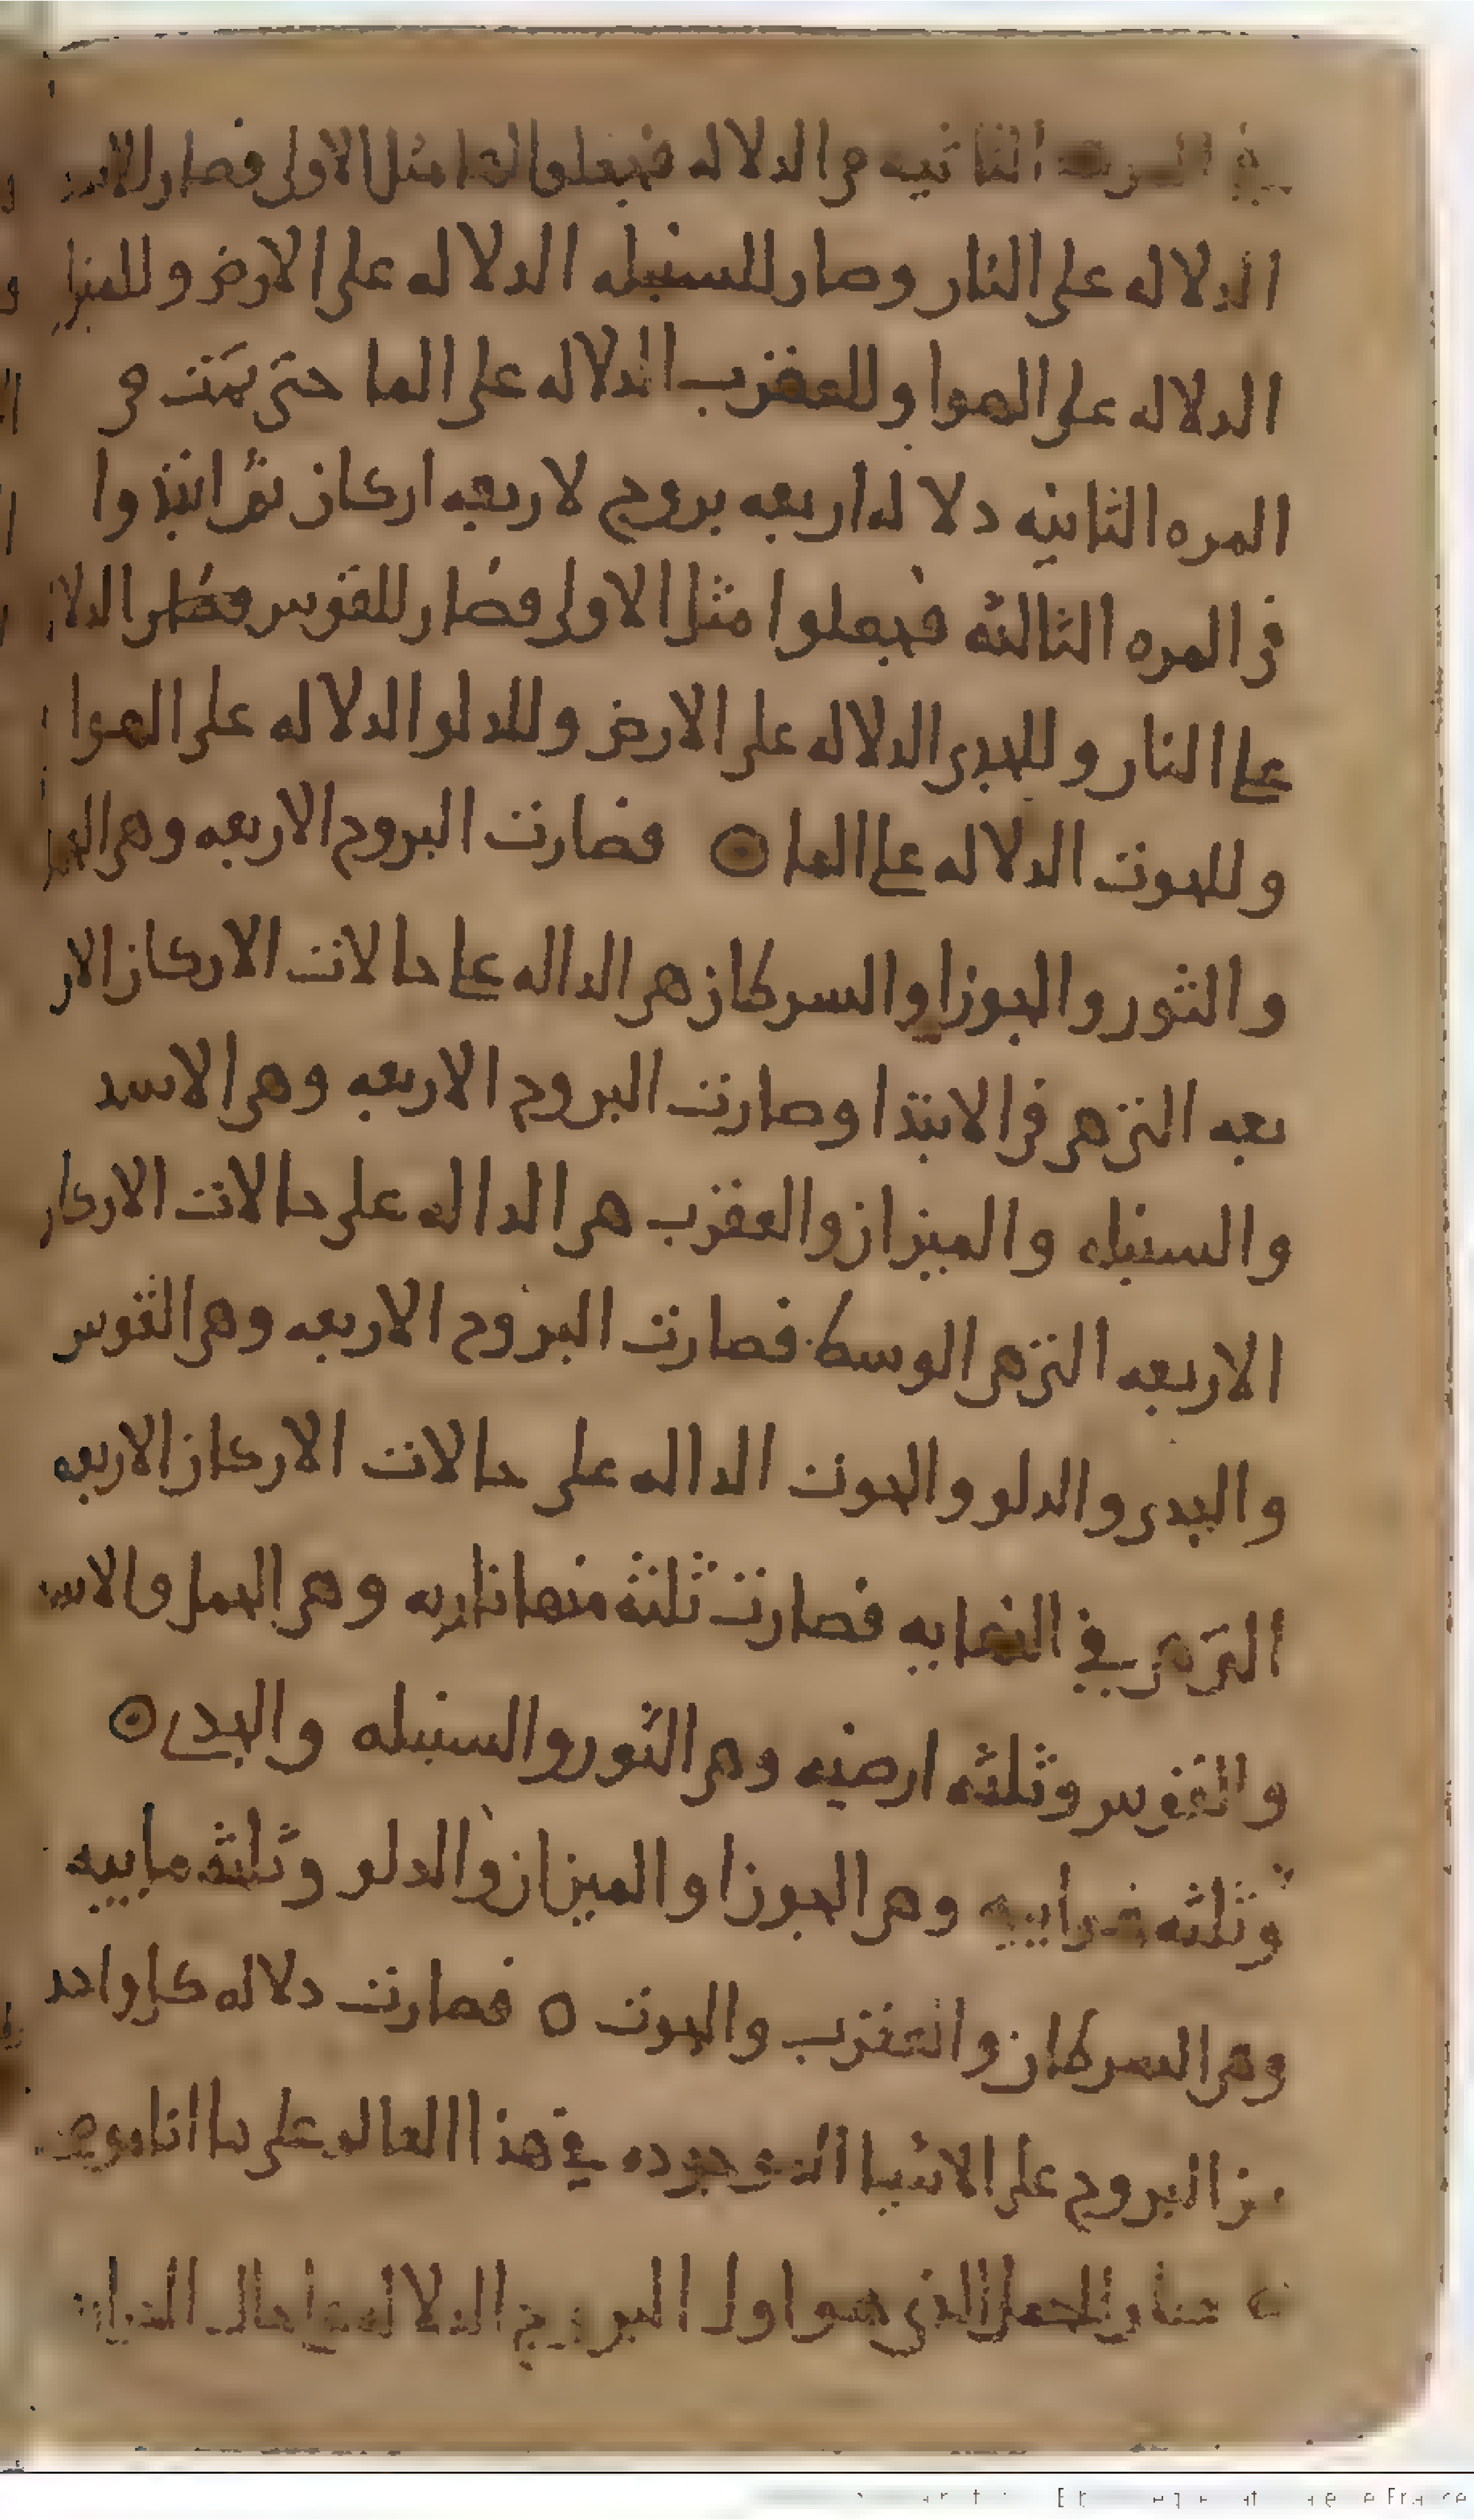 في المرة الثانيه في الدلاله فجعلوا لها مثل الاولى فصار للاسد
الدلاله على النار وصار للسنبله الدلاله على الارض وللميزا
الدلاله على الهوا وللعقرب الدلاله على الما حتى تمت في
المره الثانيه دلاله اربعه بروج لاربعه اركان ثم ابتدوا
في المره الثالثه فجعلوا مثل الاولى فصار للقوس الدلا
على النار وللجدى الدلاله على الارض وللدلو الدلاله على الهوا
وللحوت الدلاله على الما ⊙ فصارت البروج الاربعه وهى الحمل
والثور والجوزا والسرطان هى الداله على حالات الاركان الار
بعه التي هي في الابتدا وصارت البروج الاربعه وهى الاسد
والسنبله والميزان والعقرب هى الداله على حالات الاركان
الاربعه التي هى الوسط فصارت البروج الاربعه وهى القوس
والجدى والدلو والحوت الداله على حالات الاركان الاربعه
التي هي في النهايه فصارت ثلثة منها ناريه وهى الحمل والاسد
والقوس وثلثه ارضيه وهى الثور والسنبله والجدى ⊙
وثلثه هواييه وهى الجوزا والميزان والدلو وثلثه ماييه
وهى السرطان والعقرب والحوت ○ فصارت دلاله كل واحد
من البروج على الاشيا الموجوده في هذا العالم على ما انا
فصار للحمل الذى هو اول البروج الدلاله على حال